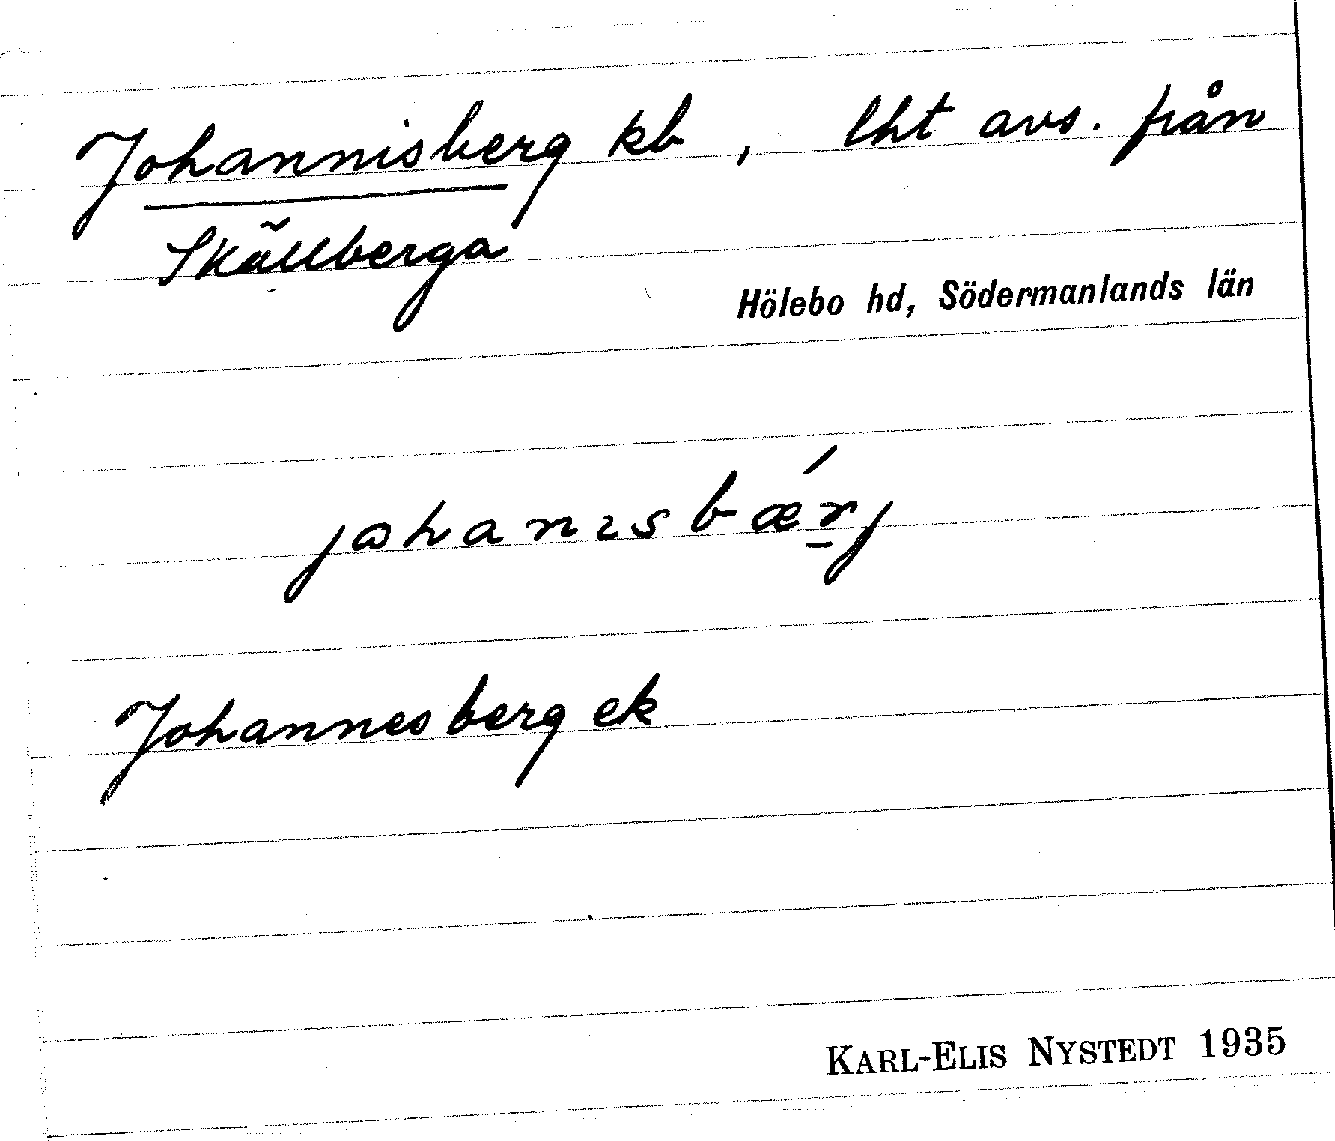 Johannisberg kb, lht avs. från
Skällberga
Hölebo hd, Södermanlands län
johanısbæŕj
Johannesberg ek
KARL-ELIS NYSTEDT 1935